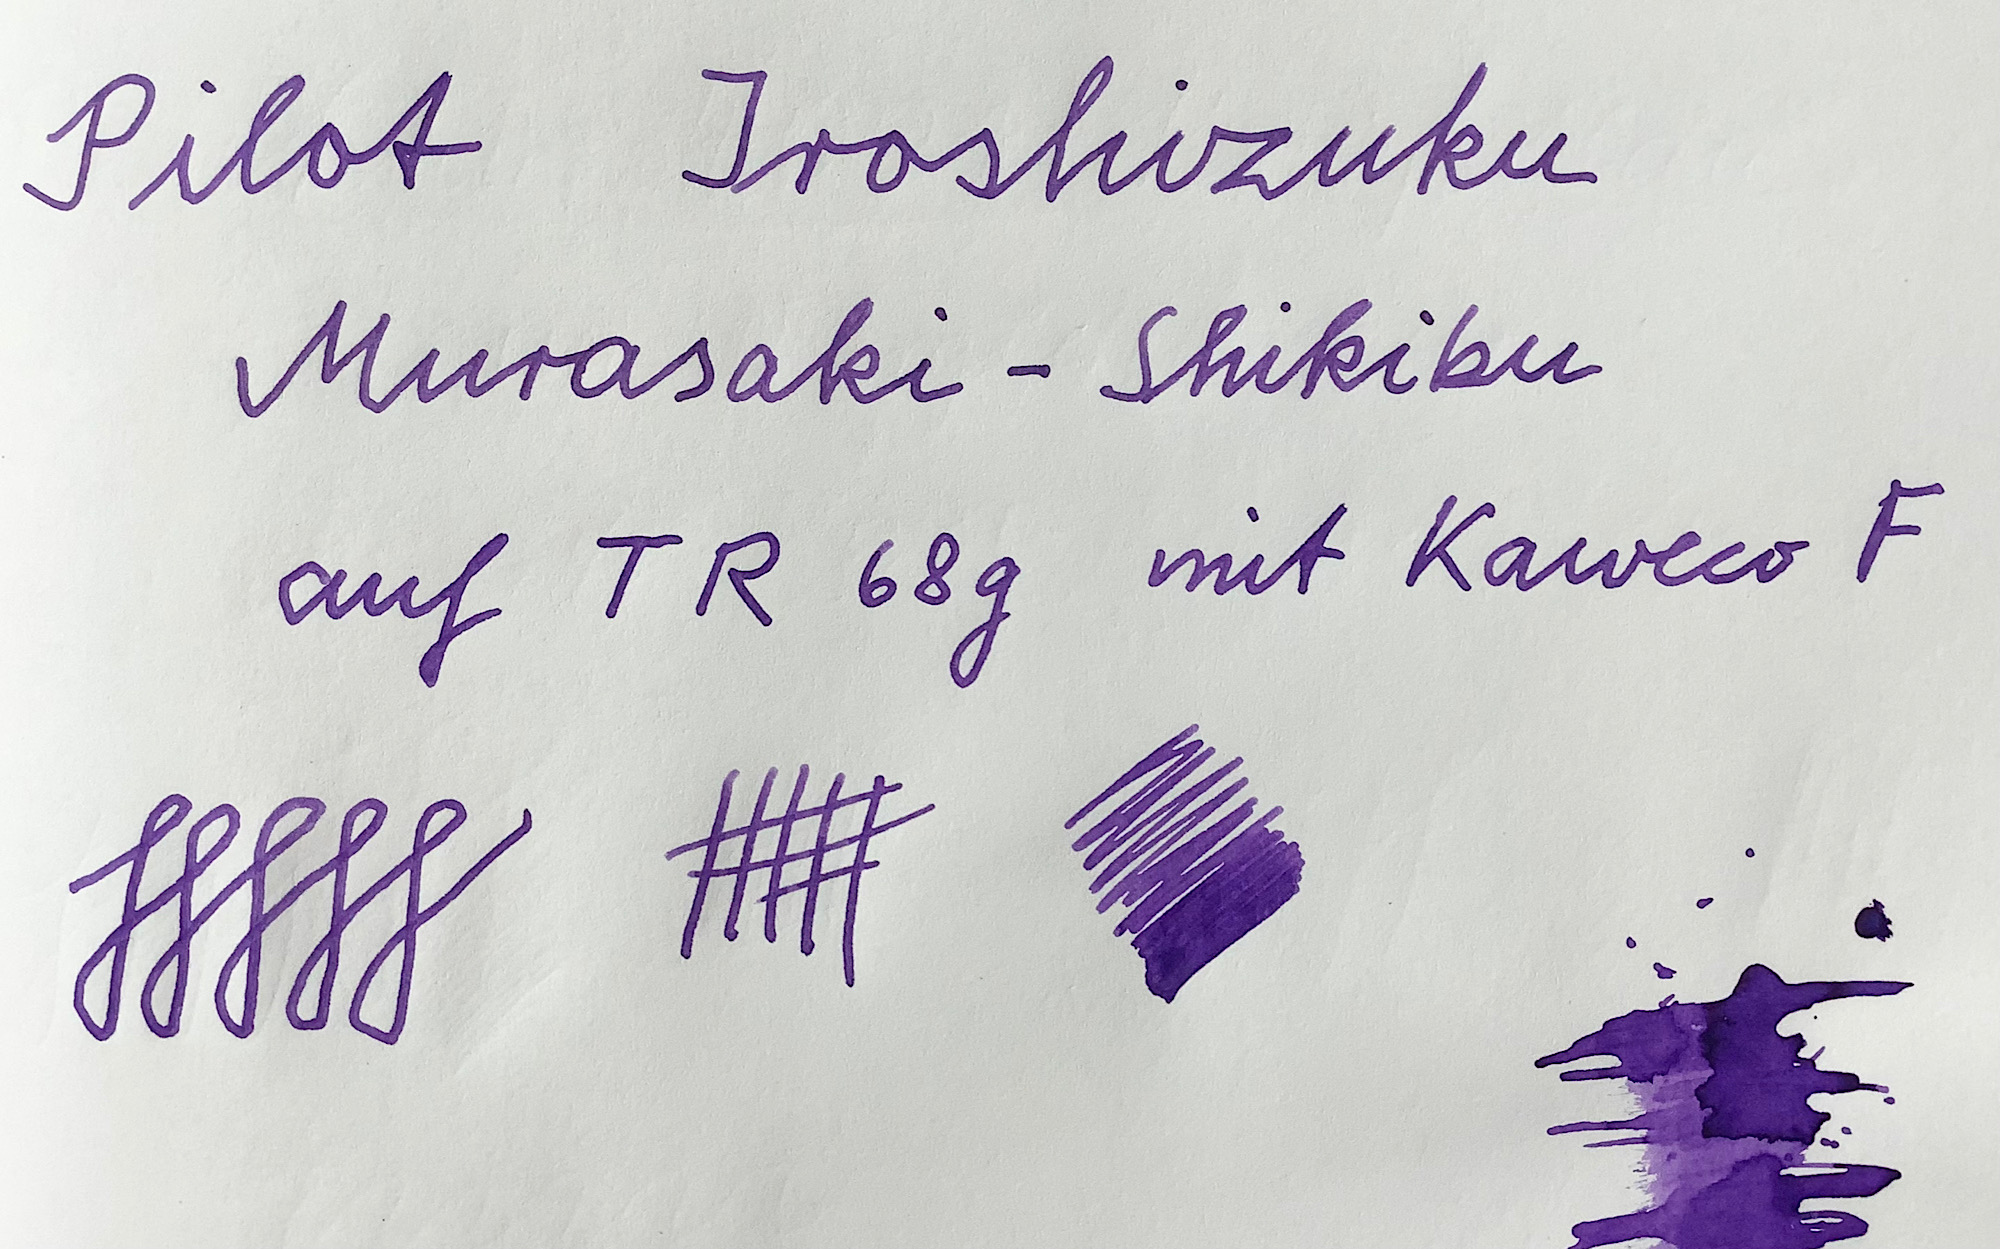 Pilot Iroshizuku
Murasaki - Shikibu
auf TR 68g mit Kaweco F